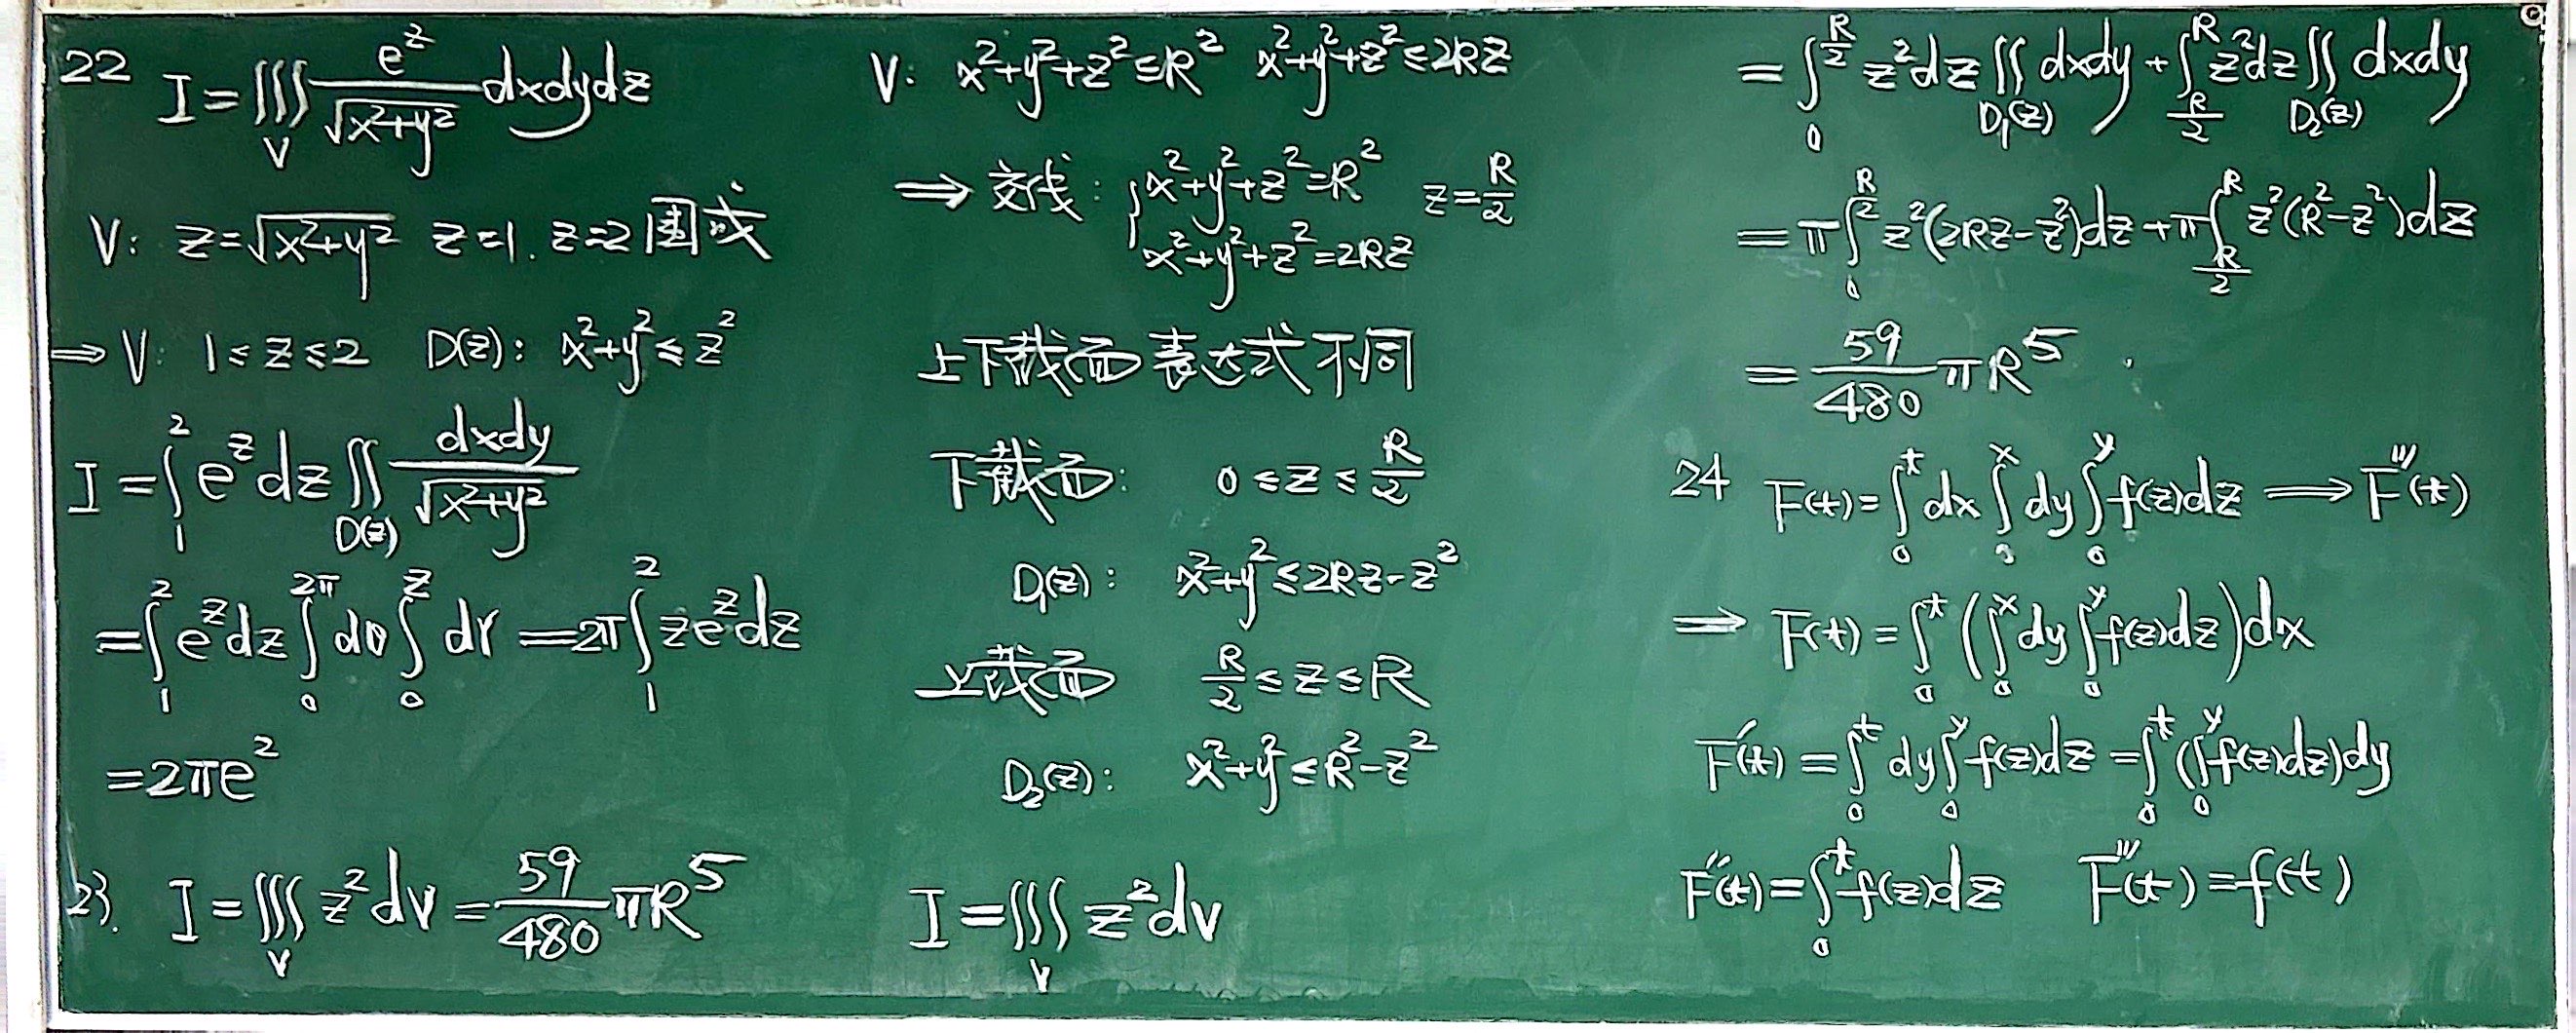 22 I=∭_V e^z/√(x²+y²) dxdydz
V: z=√(x²+y²) z=1. z=2 围成
⇒ V: 1≤z≤2 D(z): x²+y²≤z²
I=∫_1^2 e^z dz ∬_{D(z)} dxdy/√(x²+y²)
=∫_1^2 e^z dz ∫_0^{2π} dθ ∫_0^z dr =2π∫_1^2 ze^z dz
=2πe²
23. I=∭_V z²dv=59/480 πR⁵
V: x²+y²+z²≤R² x²+y²+z²≤2Rz
⇒ 交线: { x²+y²+z²=R² z=R/2
x²+y²+z²=2Rz
上下截面表达式不同
下截面: 0≤z≤R/2
D₁(z): x²+y²≤2Rz-z²
上截面 R/2≤z≤R
D₂(z): x²+y²≤R²-z²
I=∭_V z²dv
=∫_0^{R/2} z²dz ∬_{D₁(z)} dxdy+∫_{R/2}^R z²dz ∬_{D₂(z)} dxdy
=π∫_0^{R/2} z²(2Rz-z²)dz+π∫_{R/2}^R z²(R²-z²)dz
=59/480 πR⁵
24 F(t)=∫_0^t dx ∫_0^x dy ∫_0^y f(z)dz ⟹ F'''(t)
⟹ F(t)=∫_0^t (∫_0^x dy ∫_0^y f(z)dz)dx
F'(t)=∫_0^t dy ∫_0^y f(z)dz=∫_0^t (∫_0^y f(z)dz)dy
F''(t)=∫_0^t f(z)dz F'''(t)=f(t)